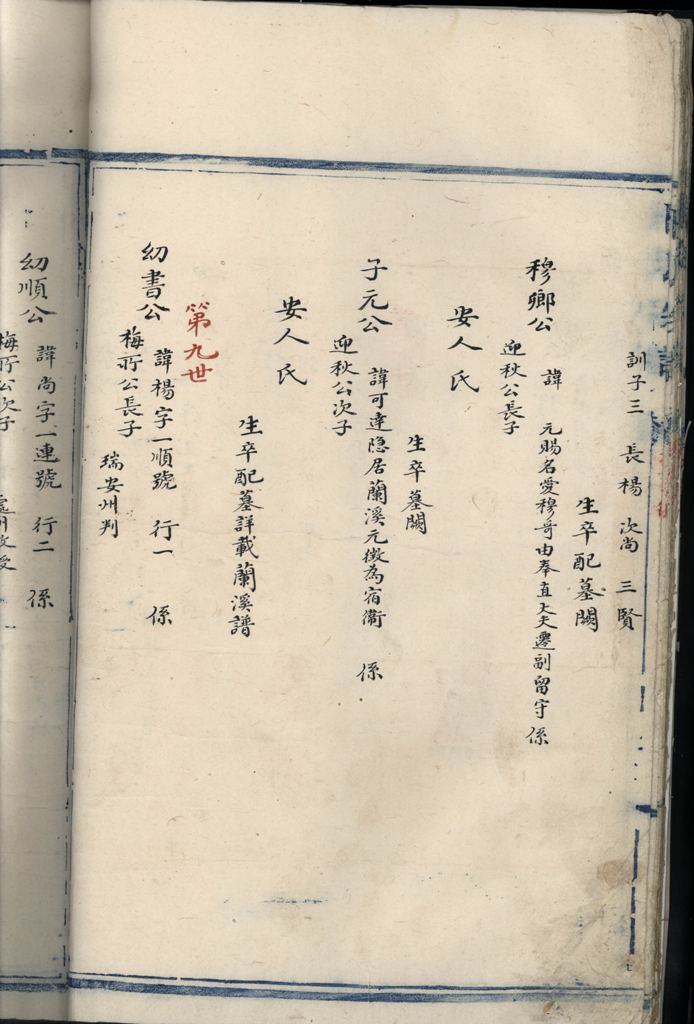 訓子三 長楊 次尚 三賢
生卒配墓闕
穆鄉公 諱 元賜名愛穆哥由奉直大夫遷副留守係
迎秋公長子
安人氏
生卒墓闕
子元公 諱可達隐居蘭溪元徵為宿衞 係
迎秋公次子
安人氏
生卒配墓詳載蘭溪譜
第九世
幼書公 諱楊字一順號 行一 係
梅所公長子
瑞安州判
幼順公 諱尚字一連號 行二 係
梅所公次子